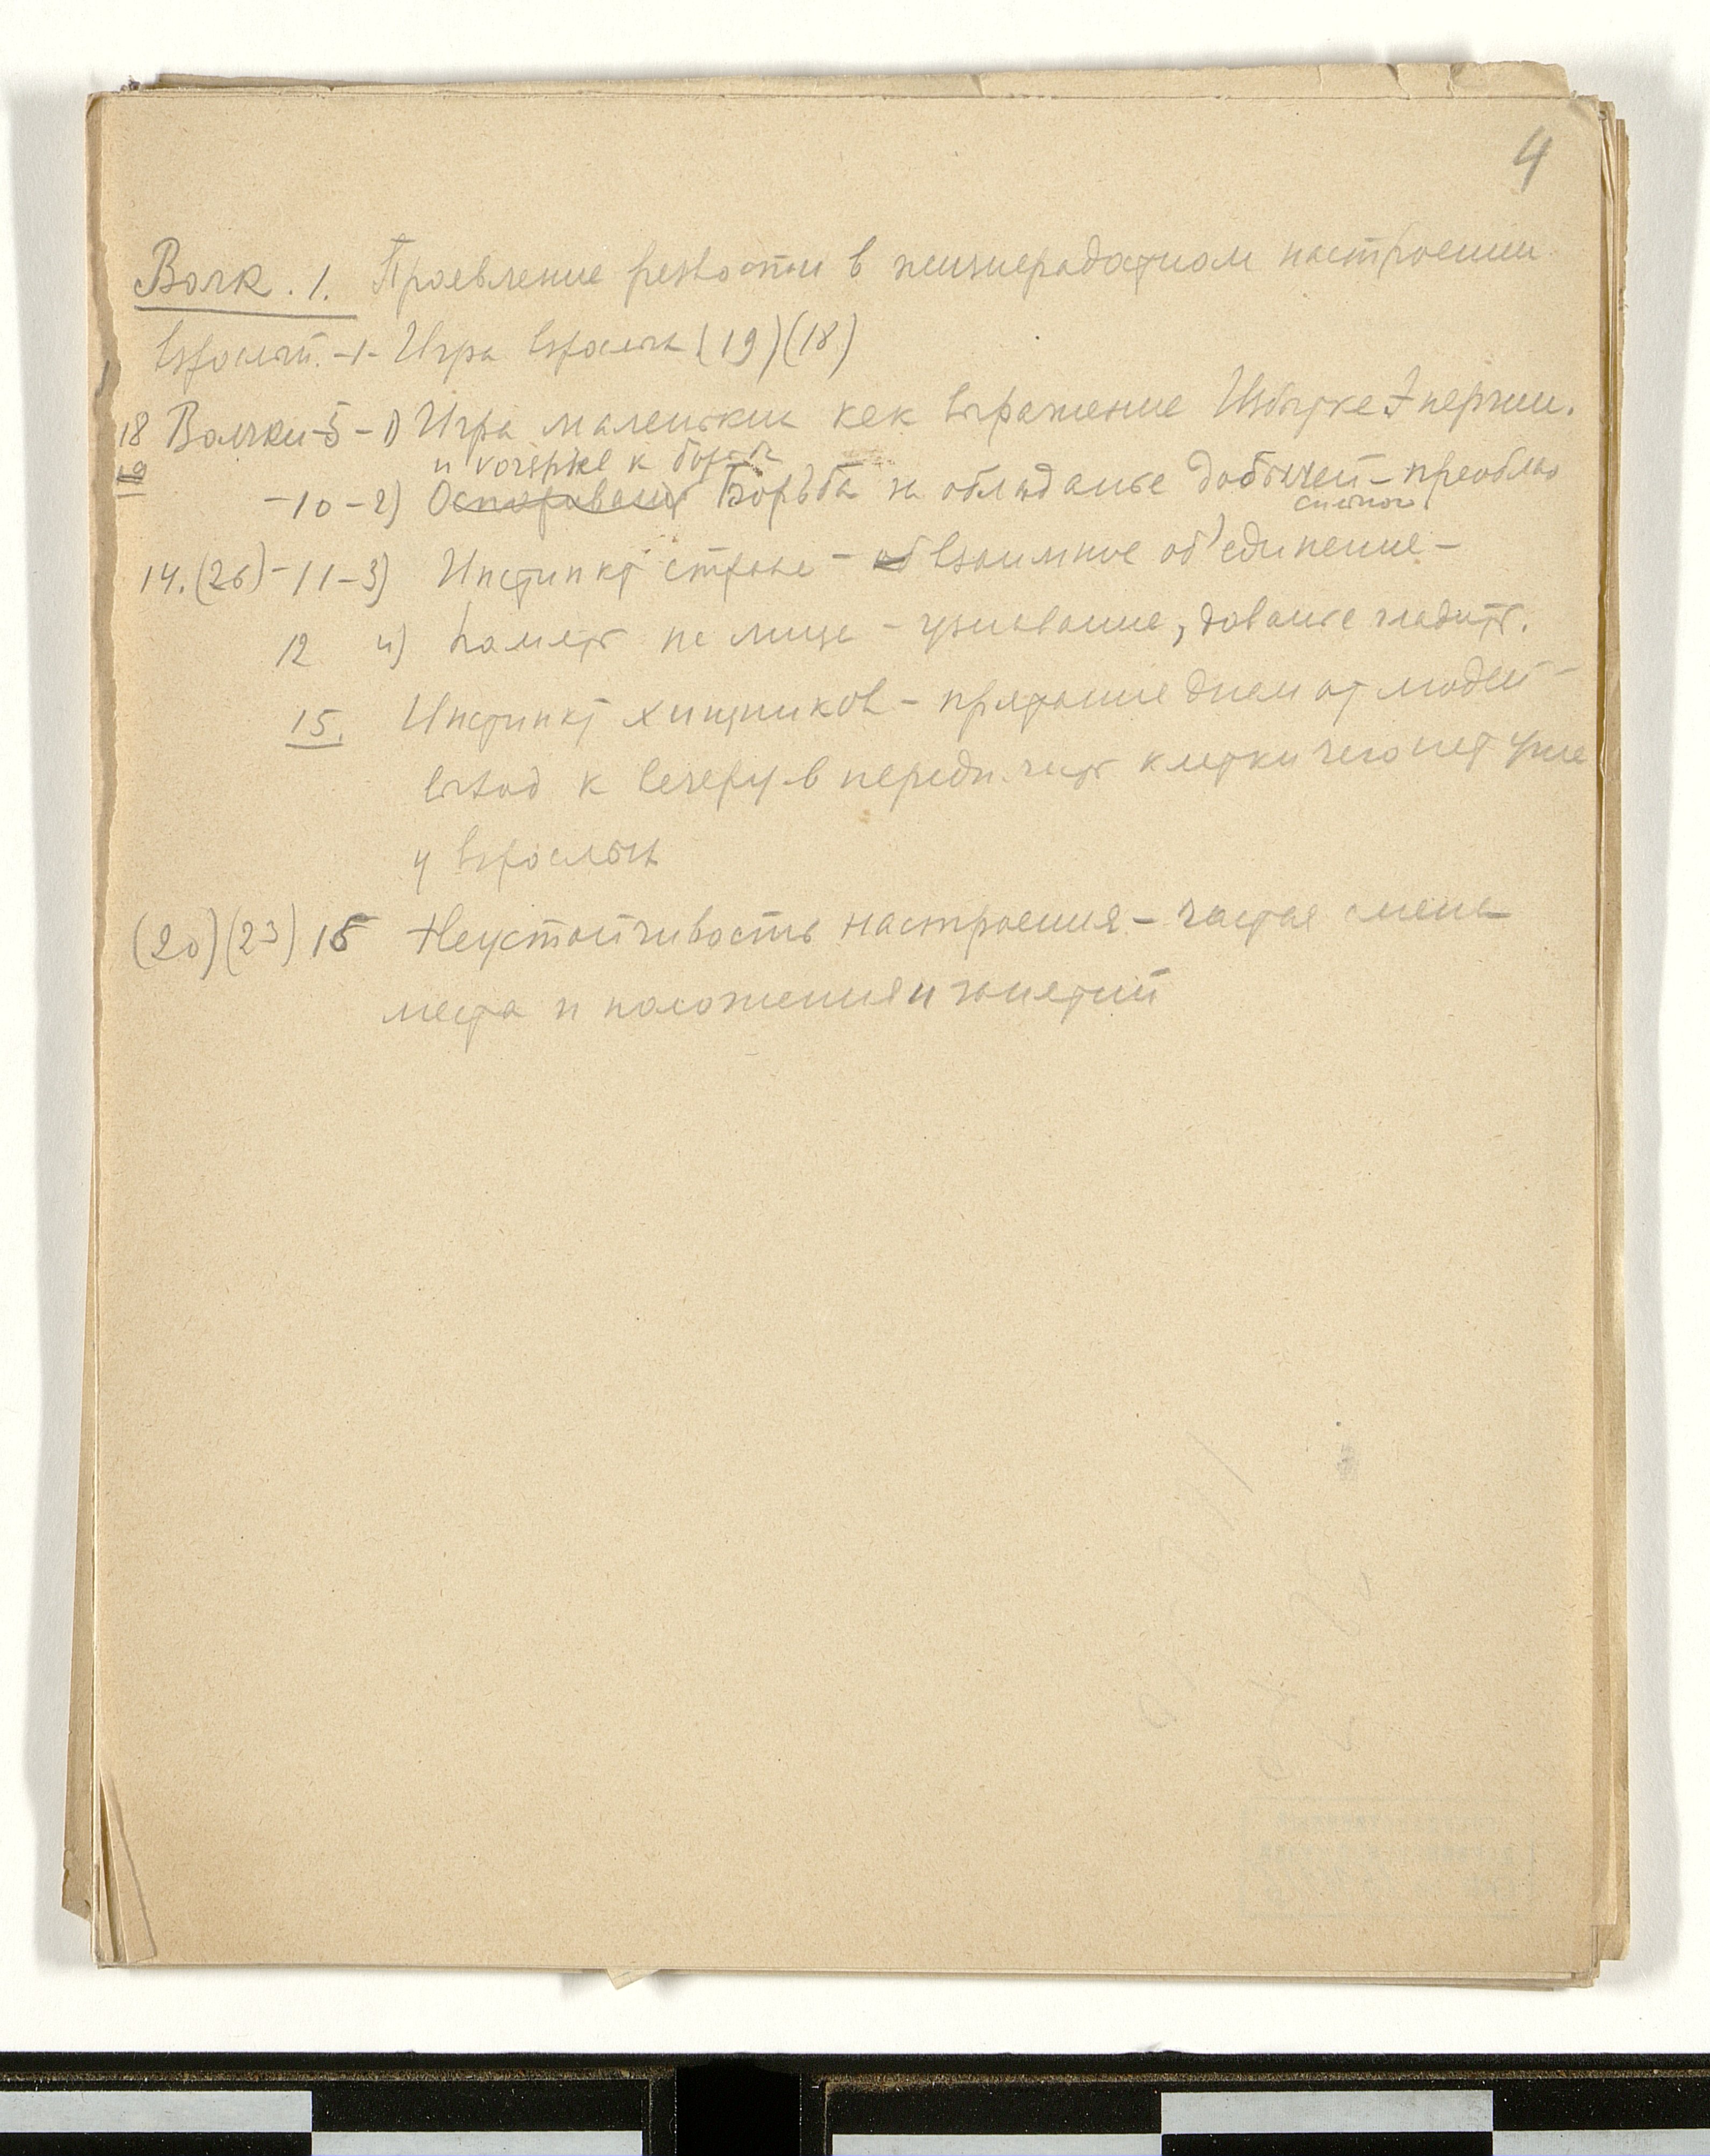 4
Волк. 1. Проявление резвости в жизнерадостном настроении
взрослый. -1- Игра взрослых (19)(18)
18 Волчки-5-1) Игра маленьких как выражение Избытка Энергии.
19 и vorspiel к борьбе
-10-2) Оспаривание Борьба за обладание добычей - преоблад
сильного
14.(26)-11-3) Инстинкт страха - взаимное об'единение-
12 4) Память на лица - узнавание, давание гладить.
15. Инстинкт хищников - прятание днем от людей -
выход к вечеру в передн. часть клетки чего нет уже
у взрослых
(20)(23) 15 Неустойчивость настроения - частая смена
места и положения и занятий